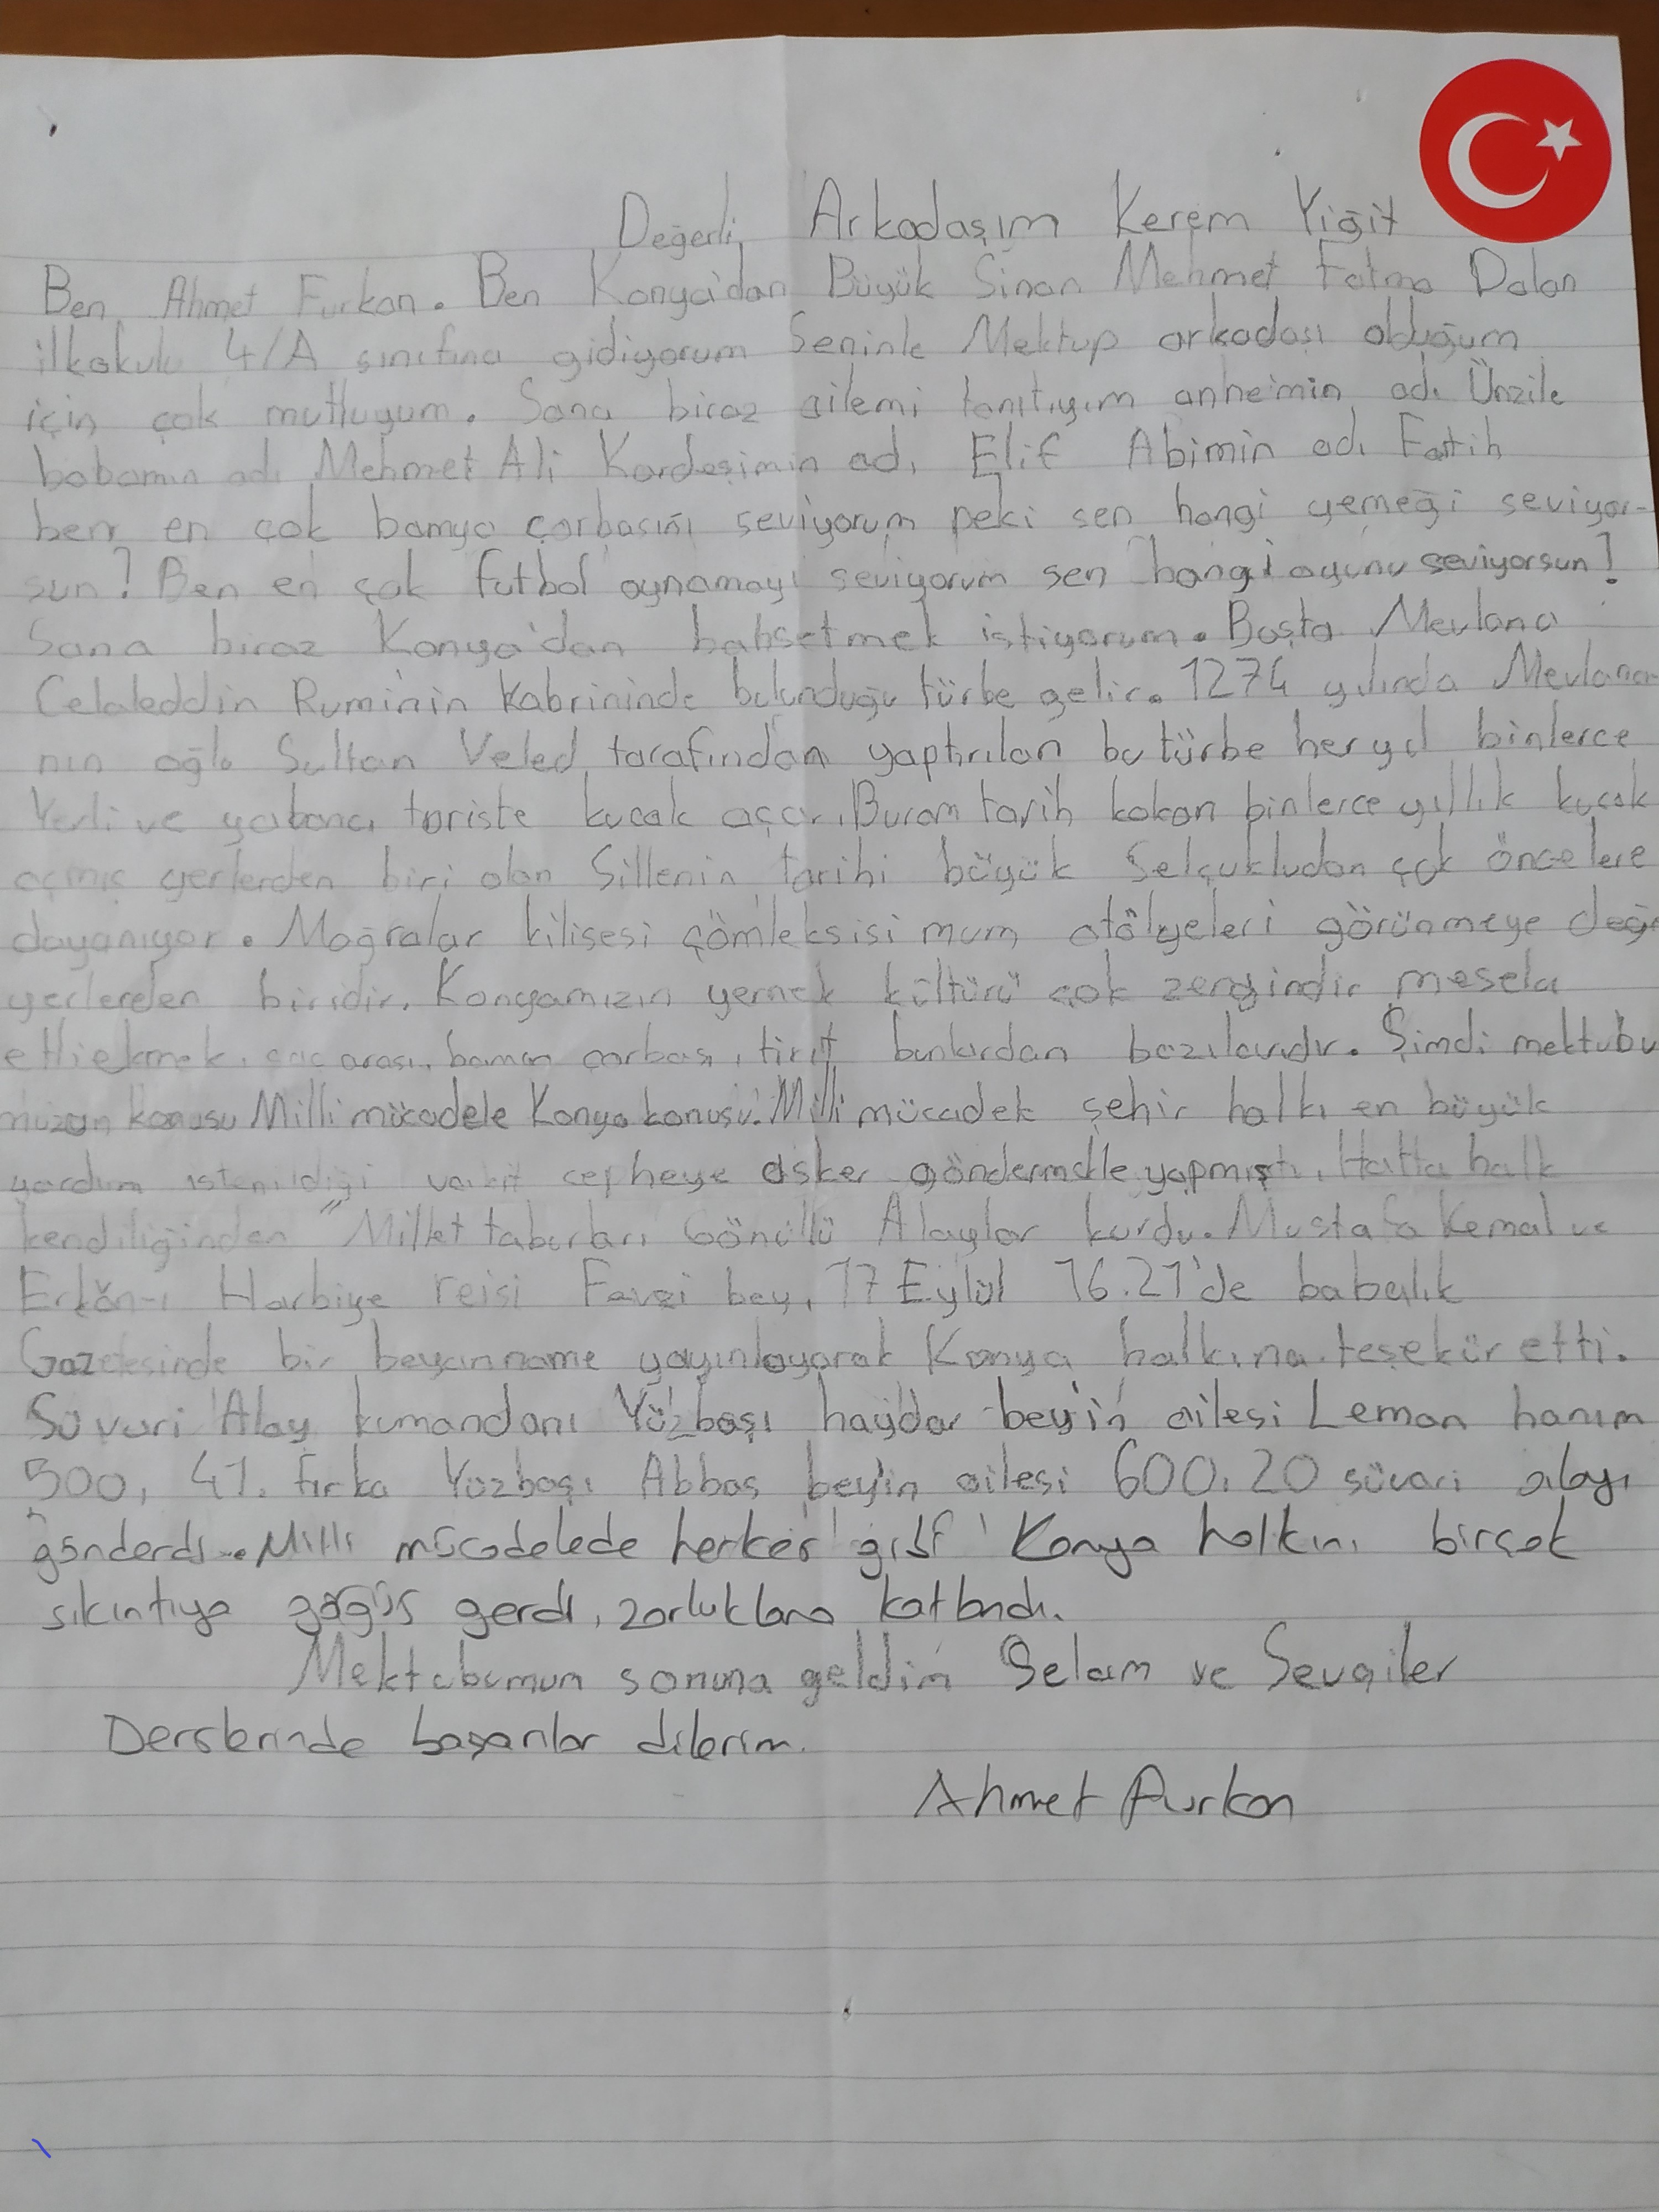 Değerli Arkadaşım Kerem Yiğit
Ben Ahmet Furkan. Ben Konya'dan Büyük Sinan Mehmet Fatma Dalan
ilkokulu 4/A sınıfına gidiyorum Seninle Mektup arkadaşı olduğum
için çok mutluyum. Sana biraz ailemi tanıtıyım annemin adı Ünzile
babamın adı Mehmet Ali Kardeşimin adı Elif Abimin adı Fatih
ben en çok bamya çorbasını seviyorum peki sen hangi yemeği seviyor-
sun? Ben en çok futbol oynamayı seviyorum sen hangi oyunu seviyorsun?
Sana biraz Konya'dan bahsetmek istiyorum. Başta Mevlana
Celaleddin Rumi'nin kabrininde bulunduğu türbe gelir. 1274 yılında Mevlana-
nın oğlu Sultan Veled tarafından yaptırılan bu türbe her yıl binlerce
Yerli ve yabancı turiste kucak açar. Buram tarih kokan binlerce yıllık kucak
açmış yerlerden biri olan Sillenin tarihi büyük Selçukludan çok öncelere
dayanıyor. Mağralar kilisesi çömleksisi mum atölyeleri görünmeye değe
yerlerden biridir. Konyamızın yemek kültürü çok zengindir mesela
etliekmek, saç arası, bamya çorbası, tirit bunlardan bazılarıdır. Şimdi mektubu
muzun konusu Milli mücadele Konya konusu. Milli mücadele şehir halkı en büyük
yardım istenildiği vakit cepheye asker göndermekle yapmıştı. Hatta halk
kendiliğinden "Millet taburları Gönüllü Alaylar kurdu. Mustafa Kemal ve
Erkân-ı Harbiye reisi Fevzi bey, 17 Eylül 16.21'de babalık
Gazetesinde bir beyanname yayınlayarak Konya halkına teşekür etti.
Süvari Alay kumandanı Yüzbaşı haydar bey'in ailesi Leman hanım
500, 41. Fırka Yüzbaşı Abbas bey'in ailesi 600, 20 süvari alayı
gönderdi. Milli mücadelede herkes gibi Konya halkını birçok
sıkıntıya göğüs gerdi, zorluklara katlandı.
Mektubumun sonuna geldim Selam ve Sevgiler
Derslerinde başarılar dilerim.
Ahmet Furkan